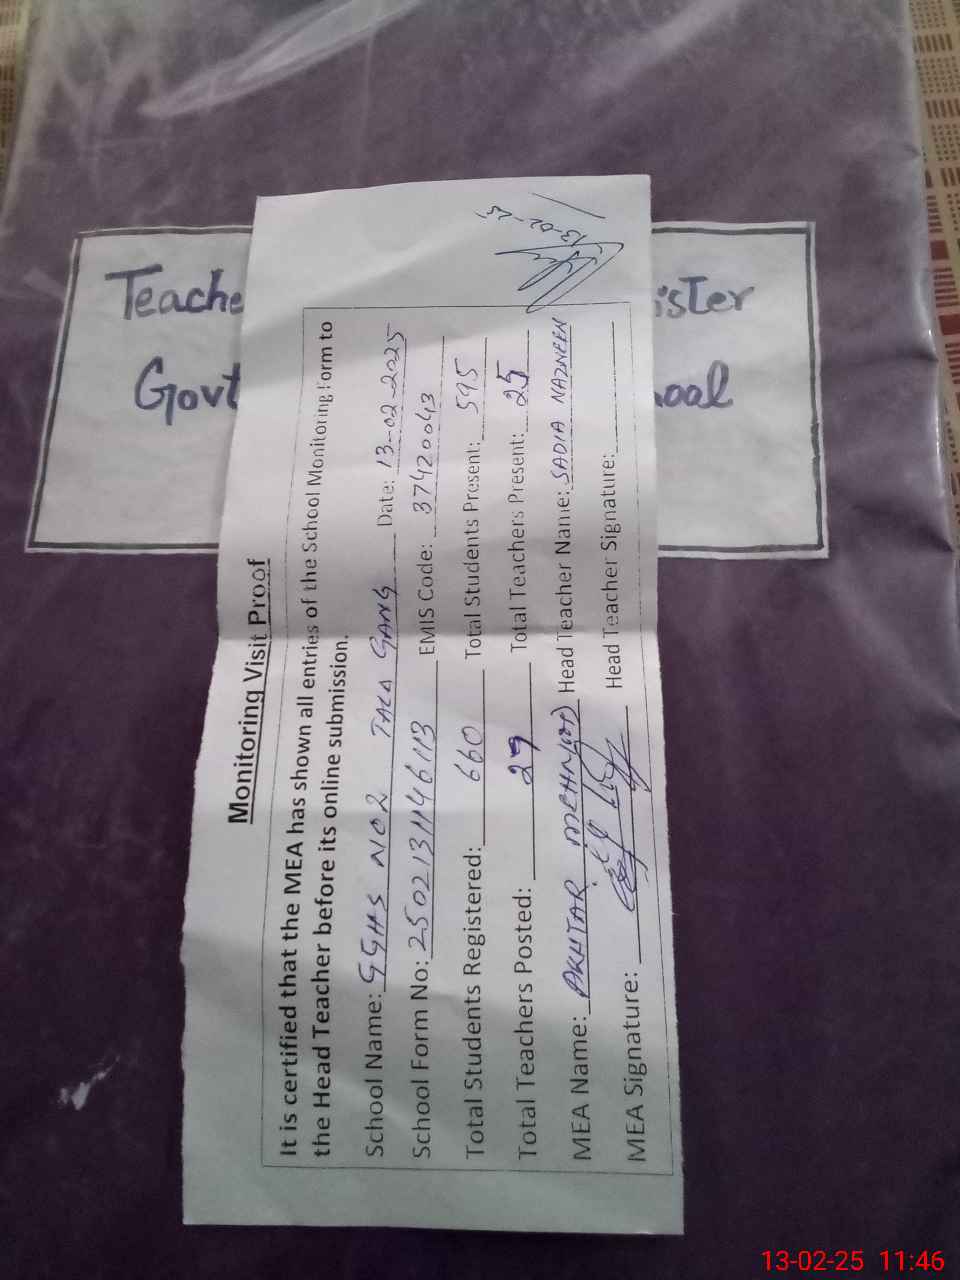 Teache
ister
Govt
ool
13-02-25
Monitoring Visit Proof
It is certified that the MEA has shown all entries of the School Monitoring Form to
the Head Teacher before its online submission.
School Name: GGHS NO2 TALA GANG Date: 13-02-2025
School Form No: 2502131146113 EMIS Code: 37420043
Total Students Registered: 660 Total Students Present: 595
Total Teachers Posted: 29 Total Teachers Present: 25
MEA Name: AKHTAR MEHMOOD Head Teacher Name: SADIA NAZNEEN
MEA Signature: Head Teacher Signature:
13-02-25 11:46